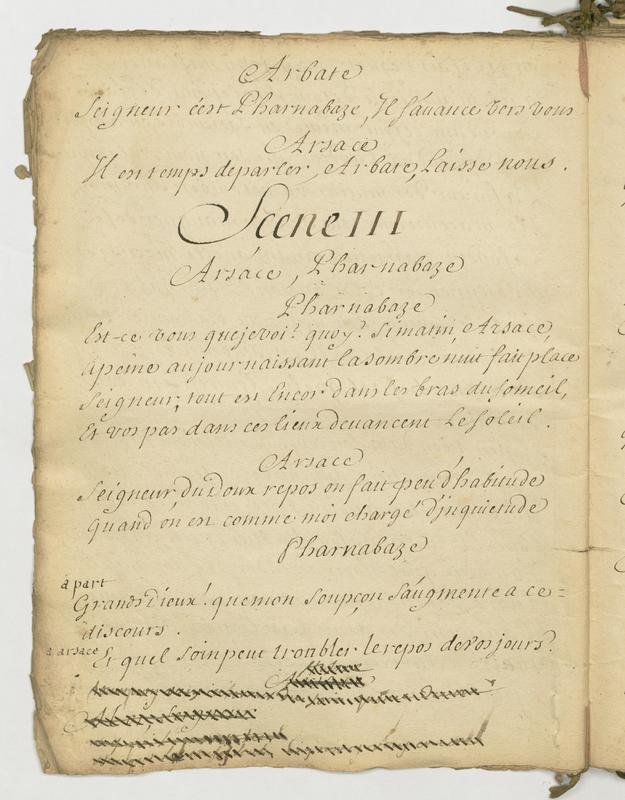 Arbate
Seigneur c'est Pharnabaze, Il s'auance vers vous
Arsace
Il en temps de parler, Arbate, Laisse nous.
Scene III
Arsace, Pharnabaze
Pharnabaze
Est-ce vous que je voi? quoy? Si matin, Arsace,
apeine au jour naissant la sombre nuit fait place
Seigneur, tout est Encor dans les bras du someil,
Et vos pas dans ces lieux deuancent Le Soleil.
Arsace
Seigneur du Doux repos on fait peu d'habitude
quand on est comme moi chargé d'inquietude
Pharnabaze
à part
Grands Dieux! que mon soupçon s'augmente a ce=
discours.
a arsace
Et quel soin peut troubler le repos de vos jours?